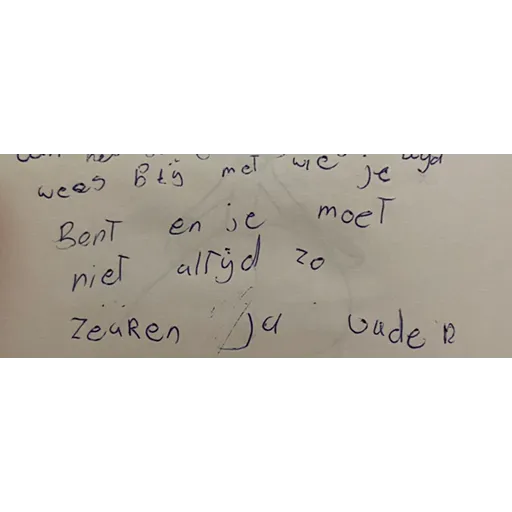 met wie
wees Blij met wie je
Bent en je moet
niet altijd zo
zeuren ja ouder